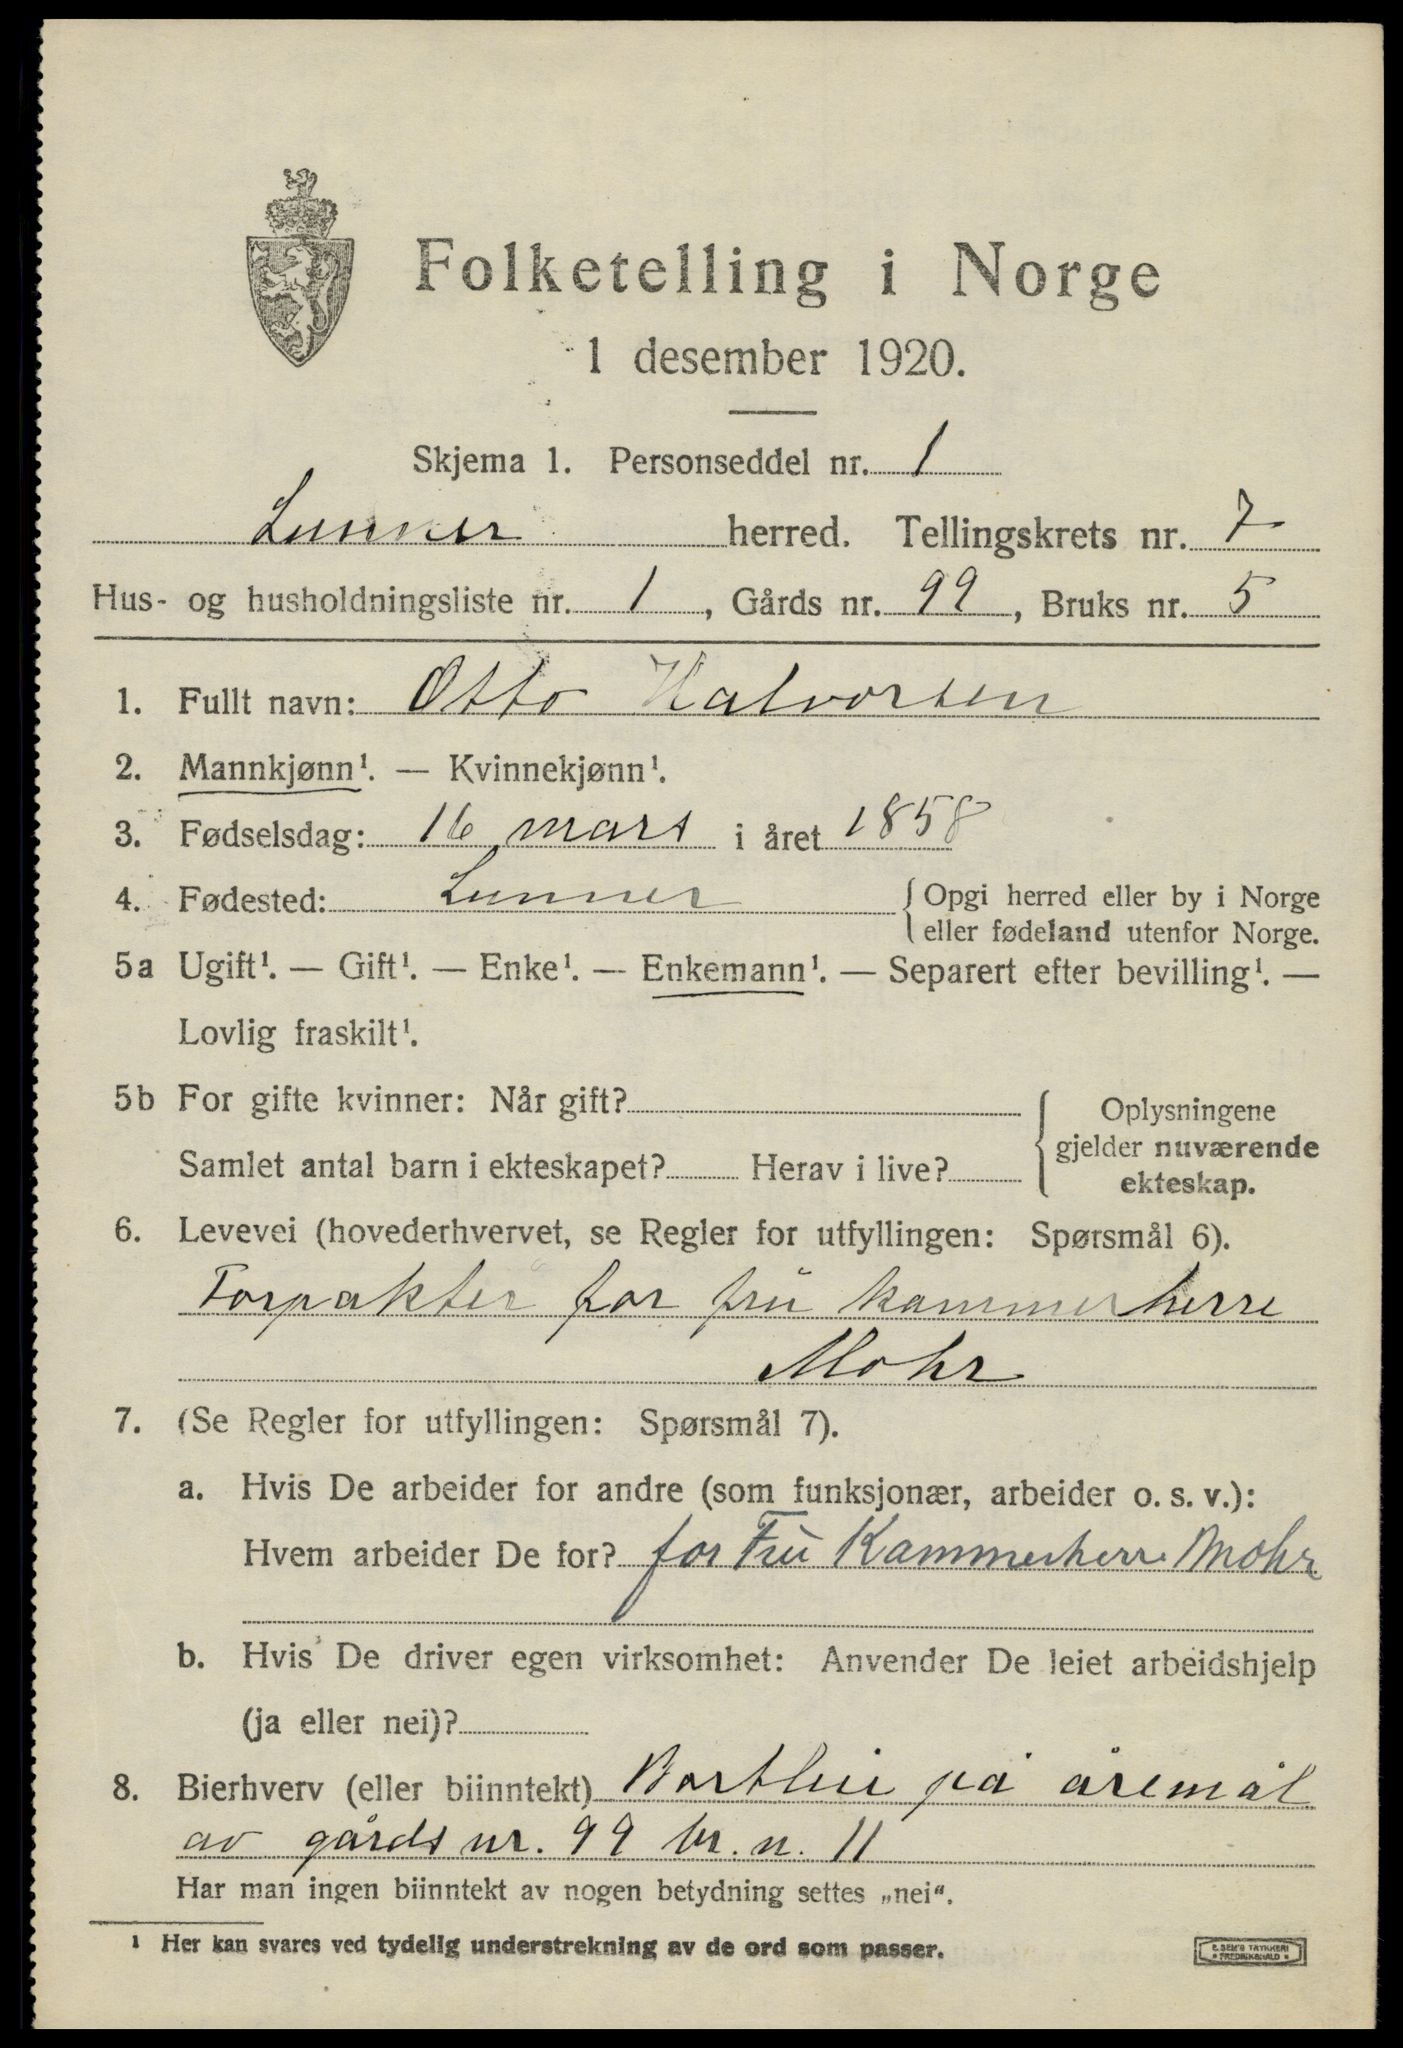 Folketelling i Norge
1 desember 1920.
Skjema 1. Personseddel nr. 1
Lunner herred. Tellingskrets nr. 7
Hus- og husholdningsliste nr. 1, Gårds nr. 99, Bruks nr. 5
1. Fullt navn: Otto Halvorsen
2. Mannkjønn¹. — Kvinnekjønn¹.
3. Fødselsdag: 16 mars i året 1858
4. Fødested: Lunner { Opgi herred eller by i Norge
eller fødeland utenfor Norge.
5a Ugift¹. — Gift¹. — Enke¹. — Enkemann¹. — Separert efter bevilling¹. —
Lovlig fraskilt¹.
5b For gifte kvinner: Når gift?
Samlet antal barn i ekteskapet? Herav i live?
{ Oplysningene
gjelder nuværende
ekteskap.
6. Levevei (hovederhvervet, se Regler for utfyllingen: Spørsmål 6).
Forpakter for fru kammerherre
Mohr
7. (Se Regler for utfyllingen: Spørsmål 7).
a. Hvis De arbeider for andre (som funksjonær, arbeider o. s. v.):
Hvem arbeider De for? for Fru Kammerherre Mohr
b. Hvis De driver egen virksomhet: Anvender De leiet arbeidshjelp
(ja eller nei)?
8. Bierhverv (eller biinntekt) Bortleie på åremål
av gårds nr. 99 br. n. 11
Har man ingen biinntekt av nogen betydning settes „nei“.
¹ Her kan svares ved tydelig understrekning av de ord som passer.
E. SEM'S TRYKKERI
FREDRIKSHALD